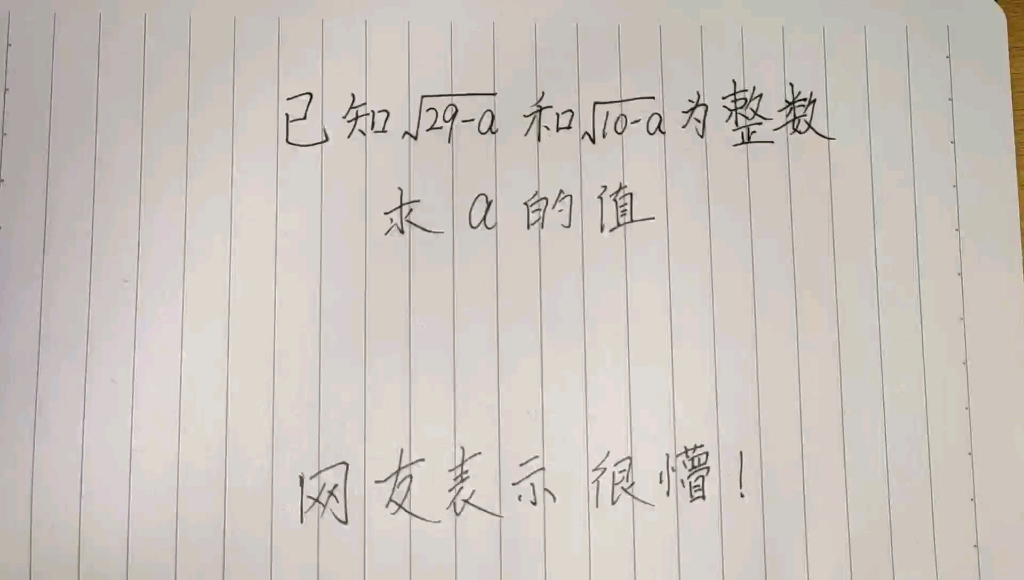 已知√29-a 和√10-a 为整数
求 a 的值
网友表示很懵!